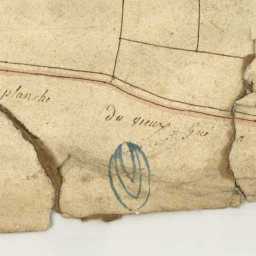 planche du vieux Gué